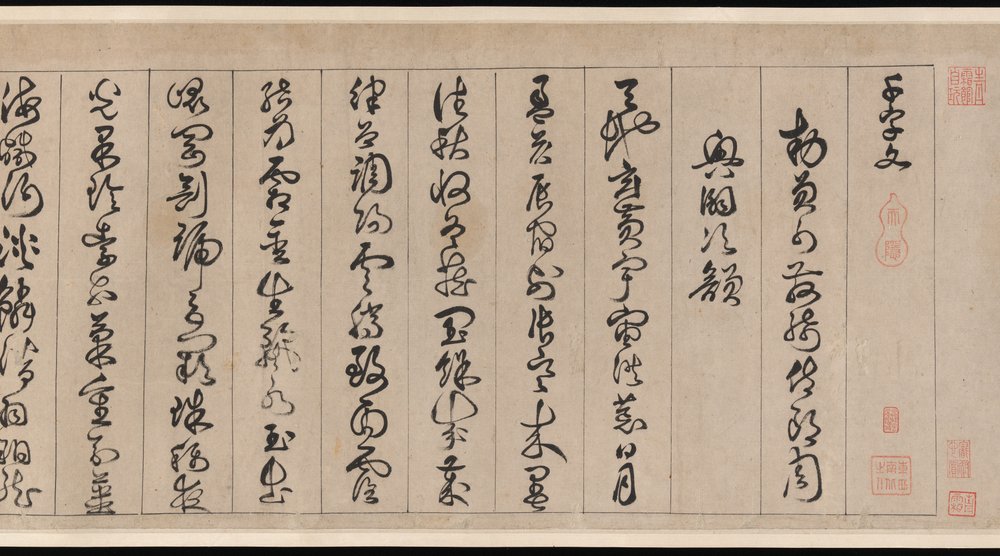 千字文
勑員外散騎侍郎周
興嗣次韻
天地玄黃宇宙洪荒日月
盈昃辰宿列張寒來暑
往秋收冬藏閏餘成歲
律呂調陽雲騰致雨露
結為霜金生麗水玉出
崐岡劍號巨闕珠稱夜
光果珍李柰菜重芥薑
海鹹河淡鱗潛羽翔龍